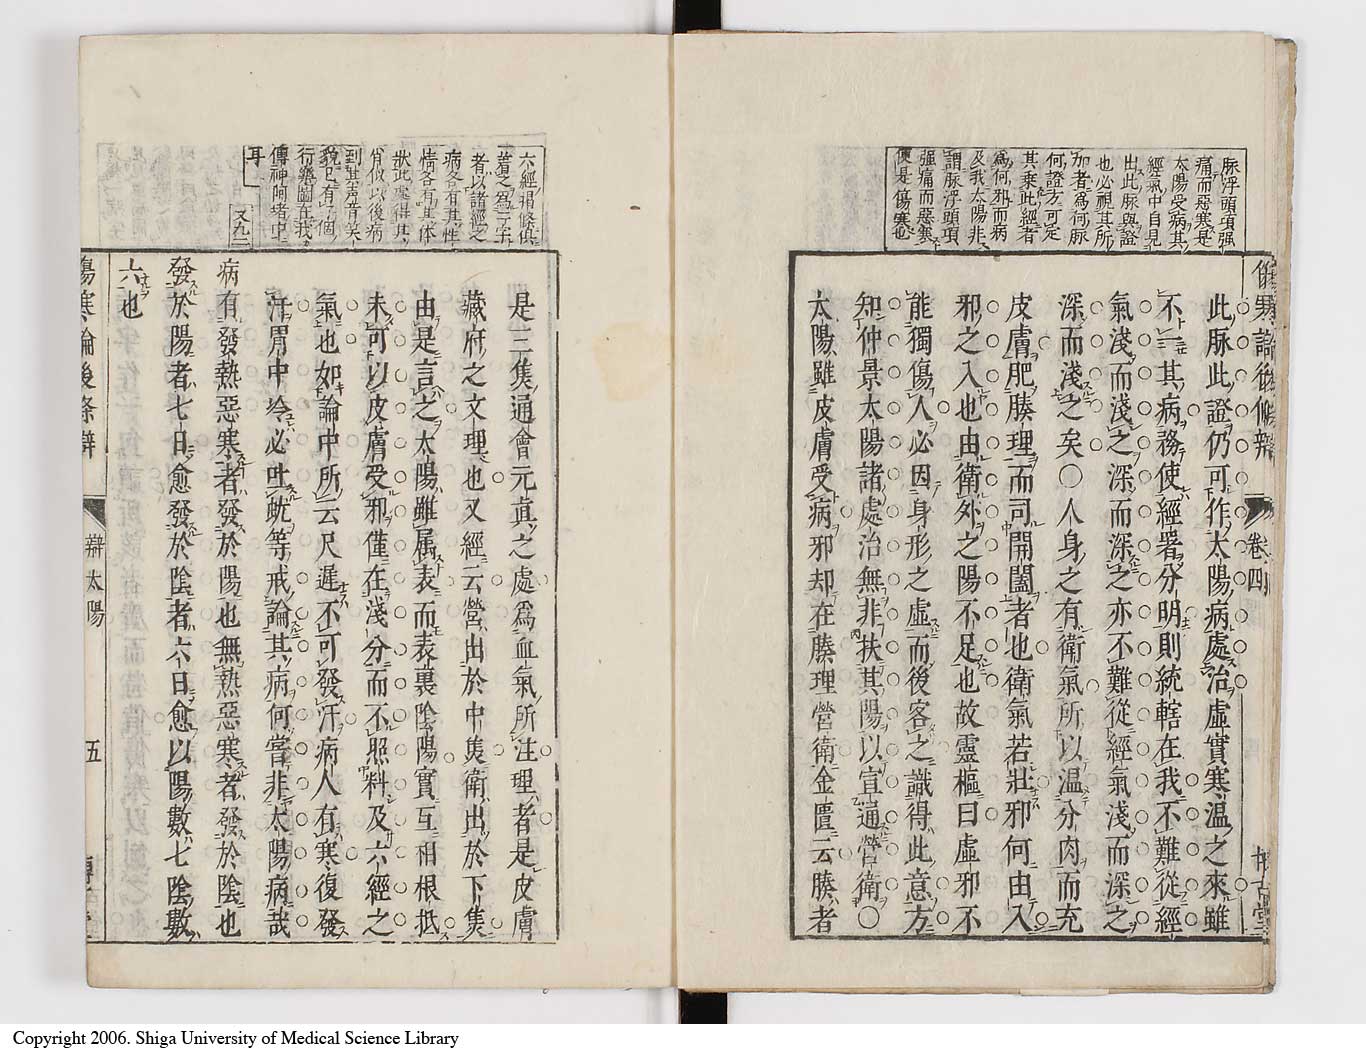 脉浮頭項强
痛而惡寒是
太陽受病其
經氣中自見
出此脉與證
也必視其所
加者爲何脉
何證方可定
其乘此經者
爲何邪而病
及我太陽非
謂脉浮頭項
强痛而惡寒
便是傷寒也
傷寒論後條辨
卷四
博古堂
此脉此證仍可作太陽病處治虛實寒溫之來雖
不一其病務使經署分明則統轄在我不難從經
氣淺而淺之深而深之亦不難從經氣淺而深之
深而淺之矣〇人身之有衛氣所以溫分肉而充
皮膚肥腠理而司開闔者也衛氣若壯邪何由入
邪之入也由衛外之陽不足也故靈樞曰虛邪不
能獨傷人必因身形之虛而後客之識得此意方
知仲景太陽諸處治無非扶其陽以宣通營衛〇
太陽雖皮膚受病邪却在腠理營衛金匱云腠者
六經猶條侯
着之爲二字
者以諸經之
病各有其性
情各有其体
狀此處得其
肖似以後病
到其声音笑
貌已有此個
行樂圖在我
傳神阿堵中
耳
又九二
是三焦通會元眞之處爲血氣所注理者是皮膚
藏府之文理也又經云營出於中焦衛出於下焦
由是言之太陽雖属表而表裏陰陽實互相根抵
未可以皮膚受邪僅在淺分而不照料及六經之
氣也如論中所云尺遲不可發汗病人有寒復發
汗胃中冷必吐蚘等戒論其病何嘗非太陽病哉
病有發熱惡寒者發於陽也無熱惡寒者發於陰也
發於陽者七日愈發於陰者六日愈以陽數七陰數
六也
傷寒論後條辨
辨太陽
五